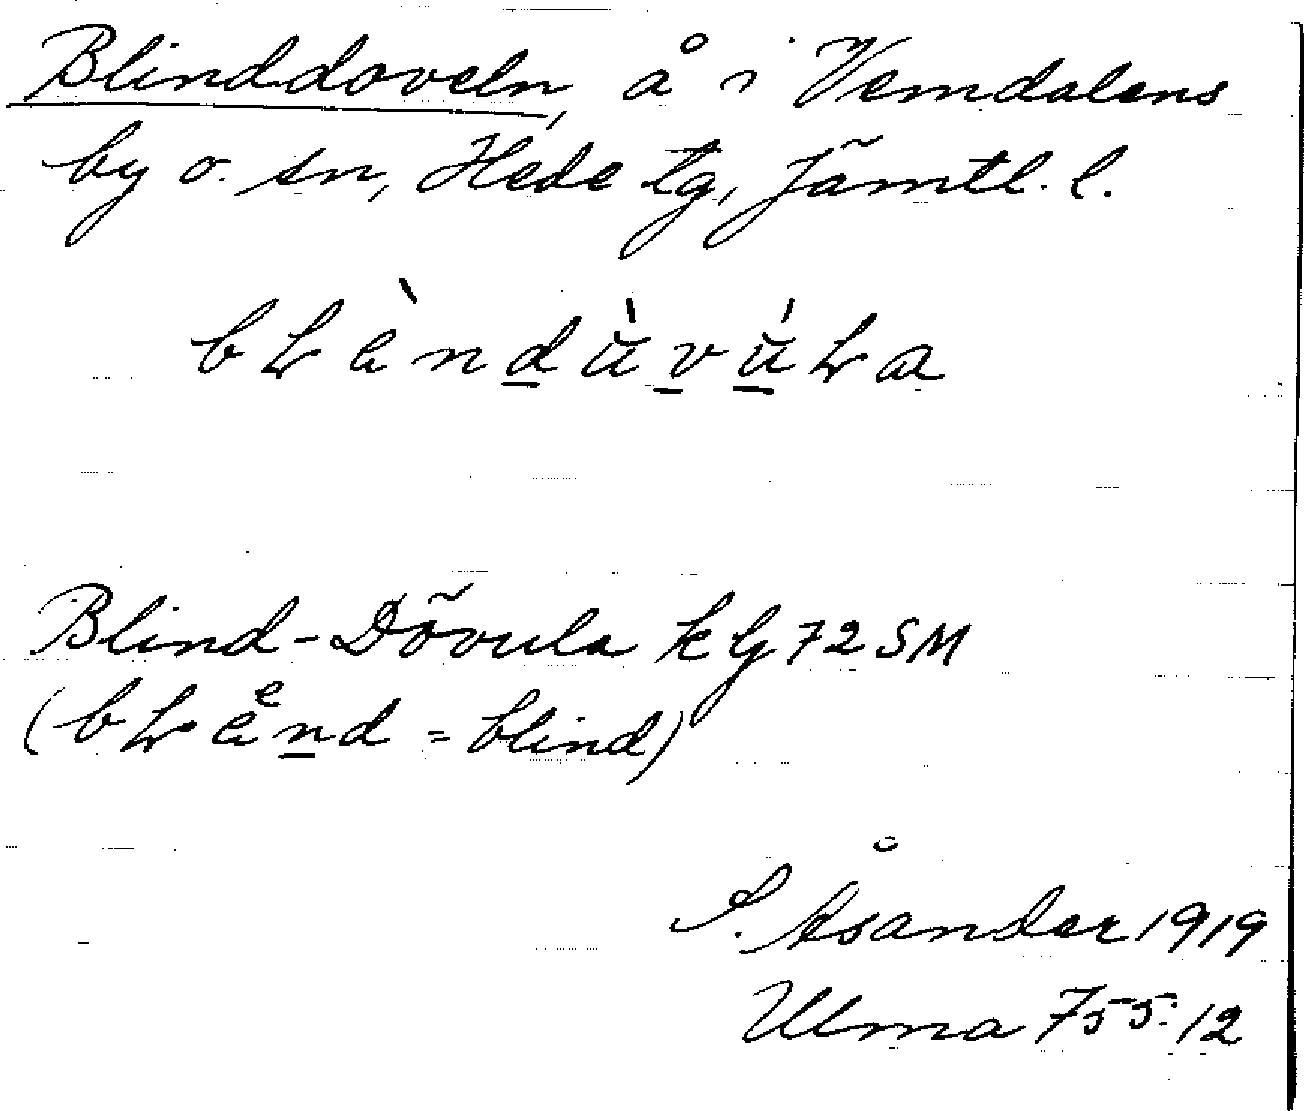 Blinddoveln, å i Vemdalens
by o. sn, Hede tg, Jämtl. l.
Blind-Dövula kg 72 SM
= blind)
Åsander 1919
Ulma 755:12